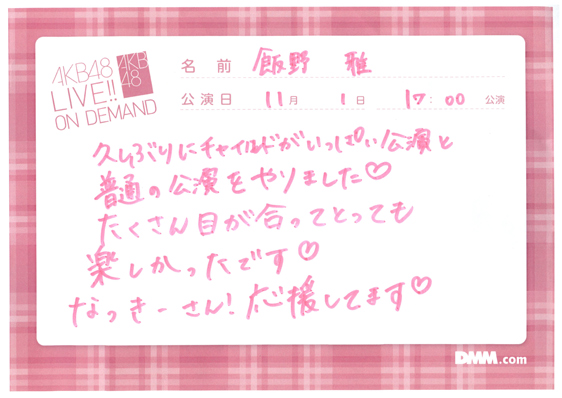 AKB48
LIVE!!
ON DEMAND
AKB
48
名 前 飯野 雅
公演日 11月 1日 17:00 公演
久しぶりにチャイルドがいっぱい公演と
普通の公演をやりました♡
たくさん目が合ってとっても
楽しかったです♡
なっきーさん!応援してます♡
DMM.com